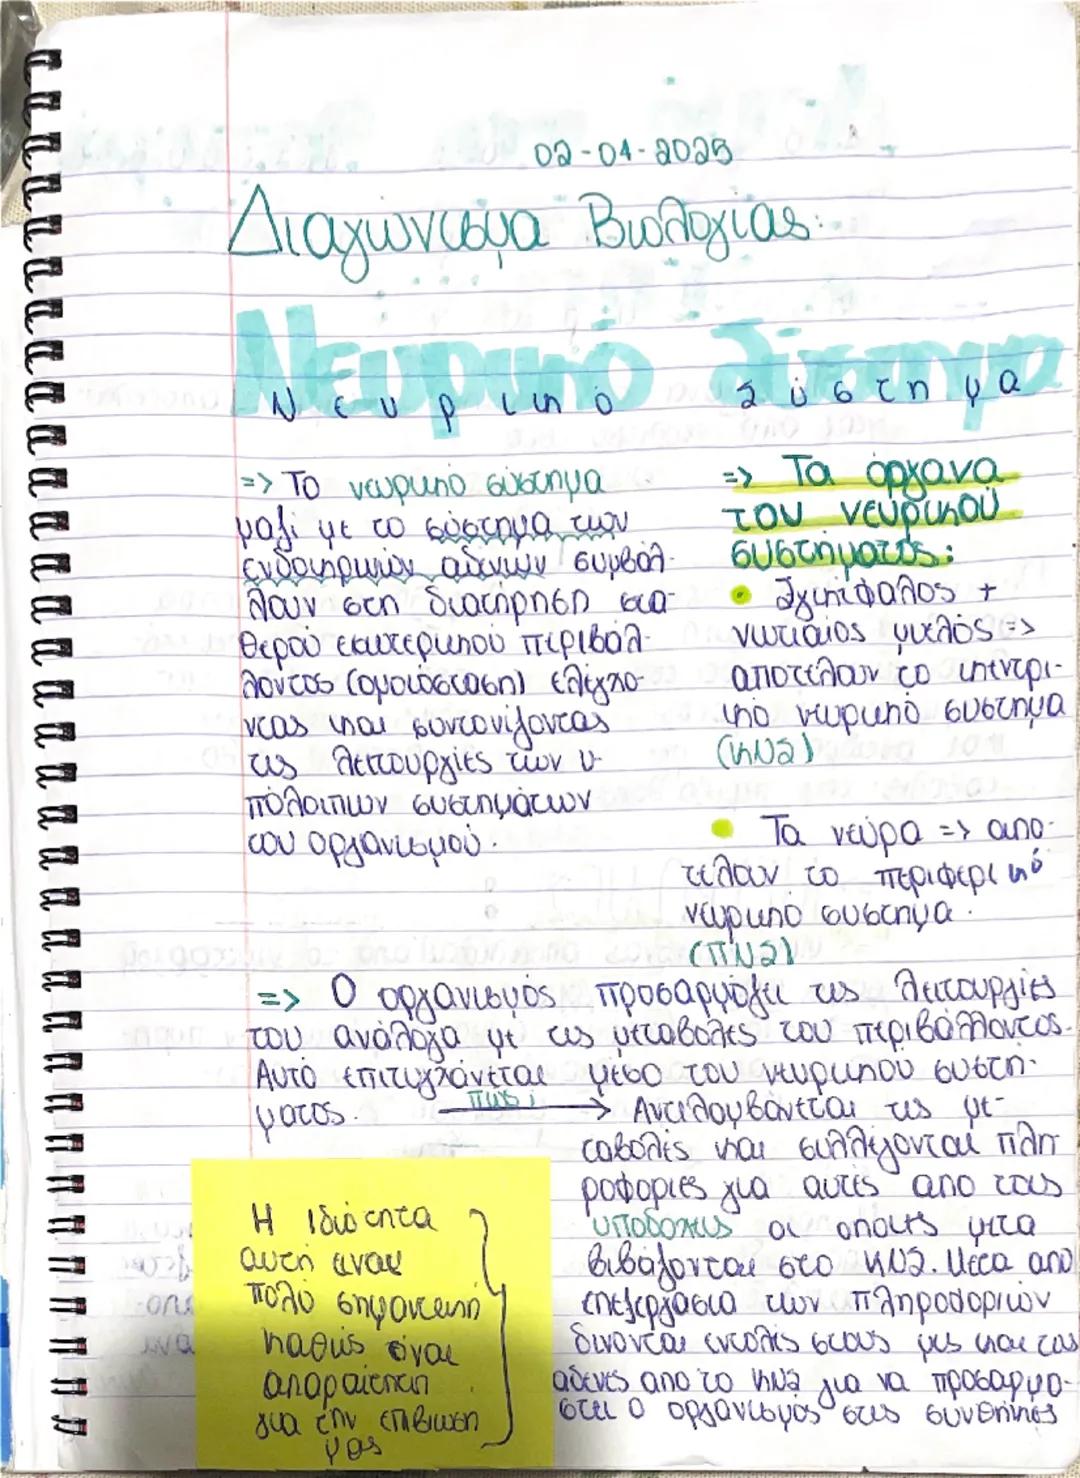 02-04-2025
Διαγώνισμα Βιολογίας:
Νευρικό Σύστημα
Νευρικό Σύστημα
=> Το νευρικό σύστημα
μαζί με το σύστημα των
ενδοκρινών αδένων συμβάλ-
λουν στη διατήρηση στα-
θερού εσωτερικού περιβάλ-
λοντος (ομοιόσταση) ελέγχο-
ντας και συντονίζοντας
τις λειτουργίες των υ-
πόλοιπων συστημάτων
του οργανισμού.
=> Τα όργανα
του νευρικού
συστήματος:
• Εγκέφαλος +
νωτιαίος μυελός =>
αποτελούν το κεντρι-
κό νευρικό σύστημα
(ΚΝΣ)
• Τα νεύρα => απο-
τελούν το περιφερικό
νευρικό σύστημα.
(ΠΝΣ)
=> Ο οργανισμός προσαρμόζει τις λειτουργίες
του ανάλογα με τις μεταβολές του περιβάλλοντος.
Αυτό επιτυγχάνεται μέσο του νευρικού συστή-
ματος. πως; → Αντιλαμβάνεται τις με-
ταβολές και συλλέγονται πλη
ροφορίες για αυτές απο τους
υποδοχείς οι οποίες μετα
βιβάζονται στο ΚΝΣ. Μετα από
επεξεργασία των πληροφοριών
δίνονται εντολές στους μυς και τους
αδένες απο το ΚΝΣ για να προσαρμο-
στεί ο οργανισμός στις συνθήκες
Η ιδιότητα
αυτή είναι
πολύ σημαντική
καθώς είναι
απαραίτητη
για την επιβίωση
μας